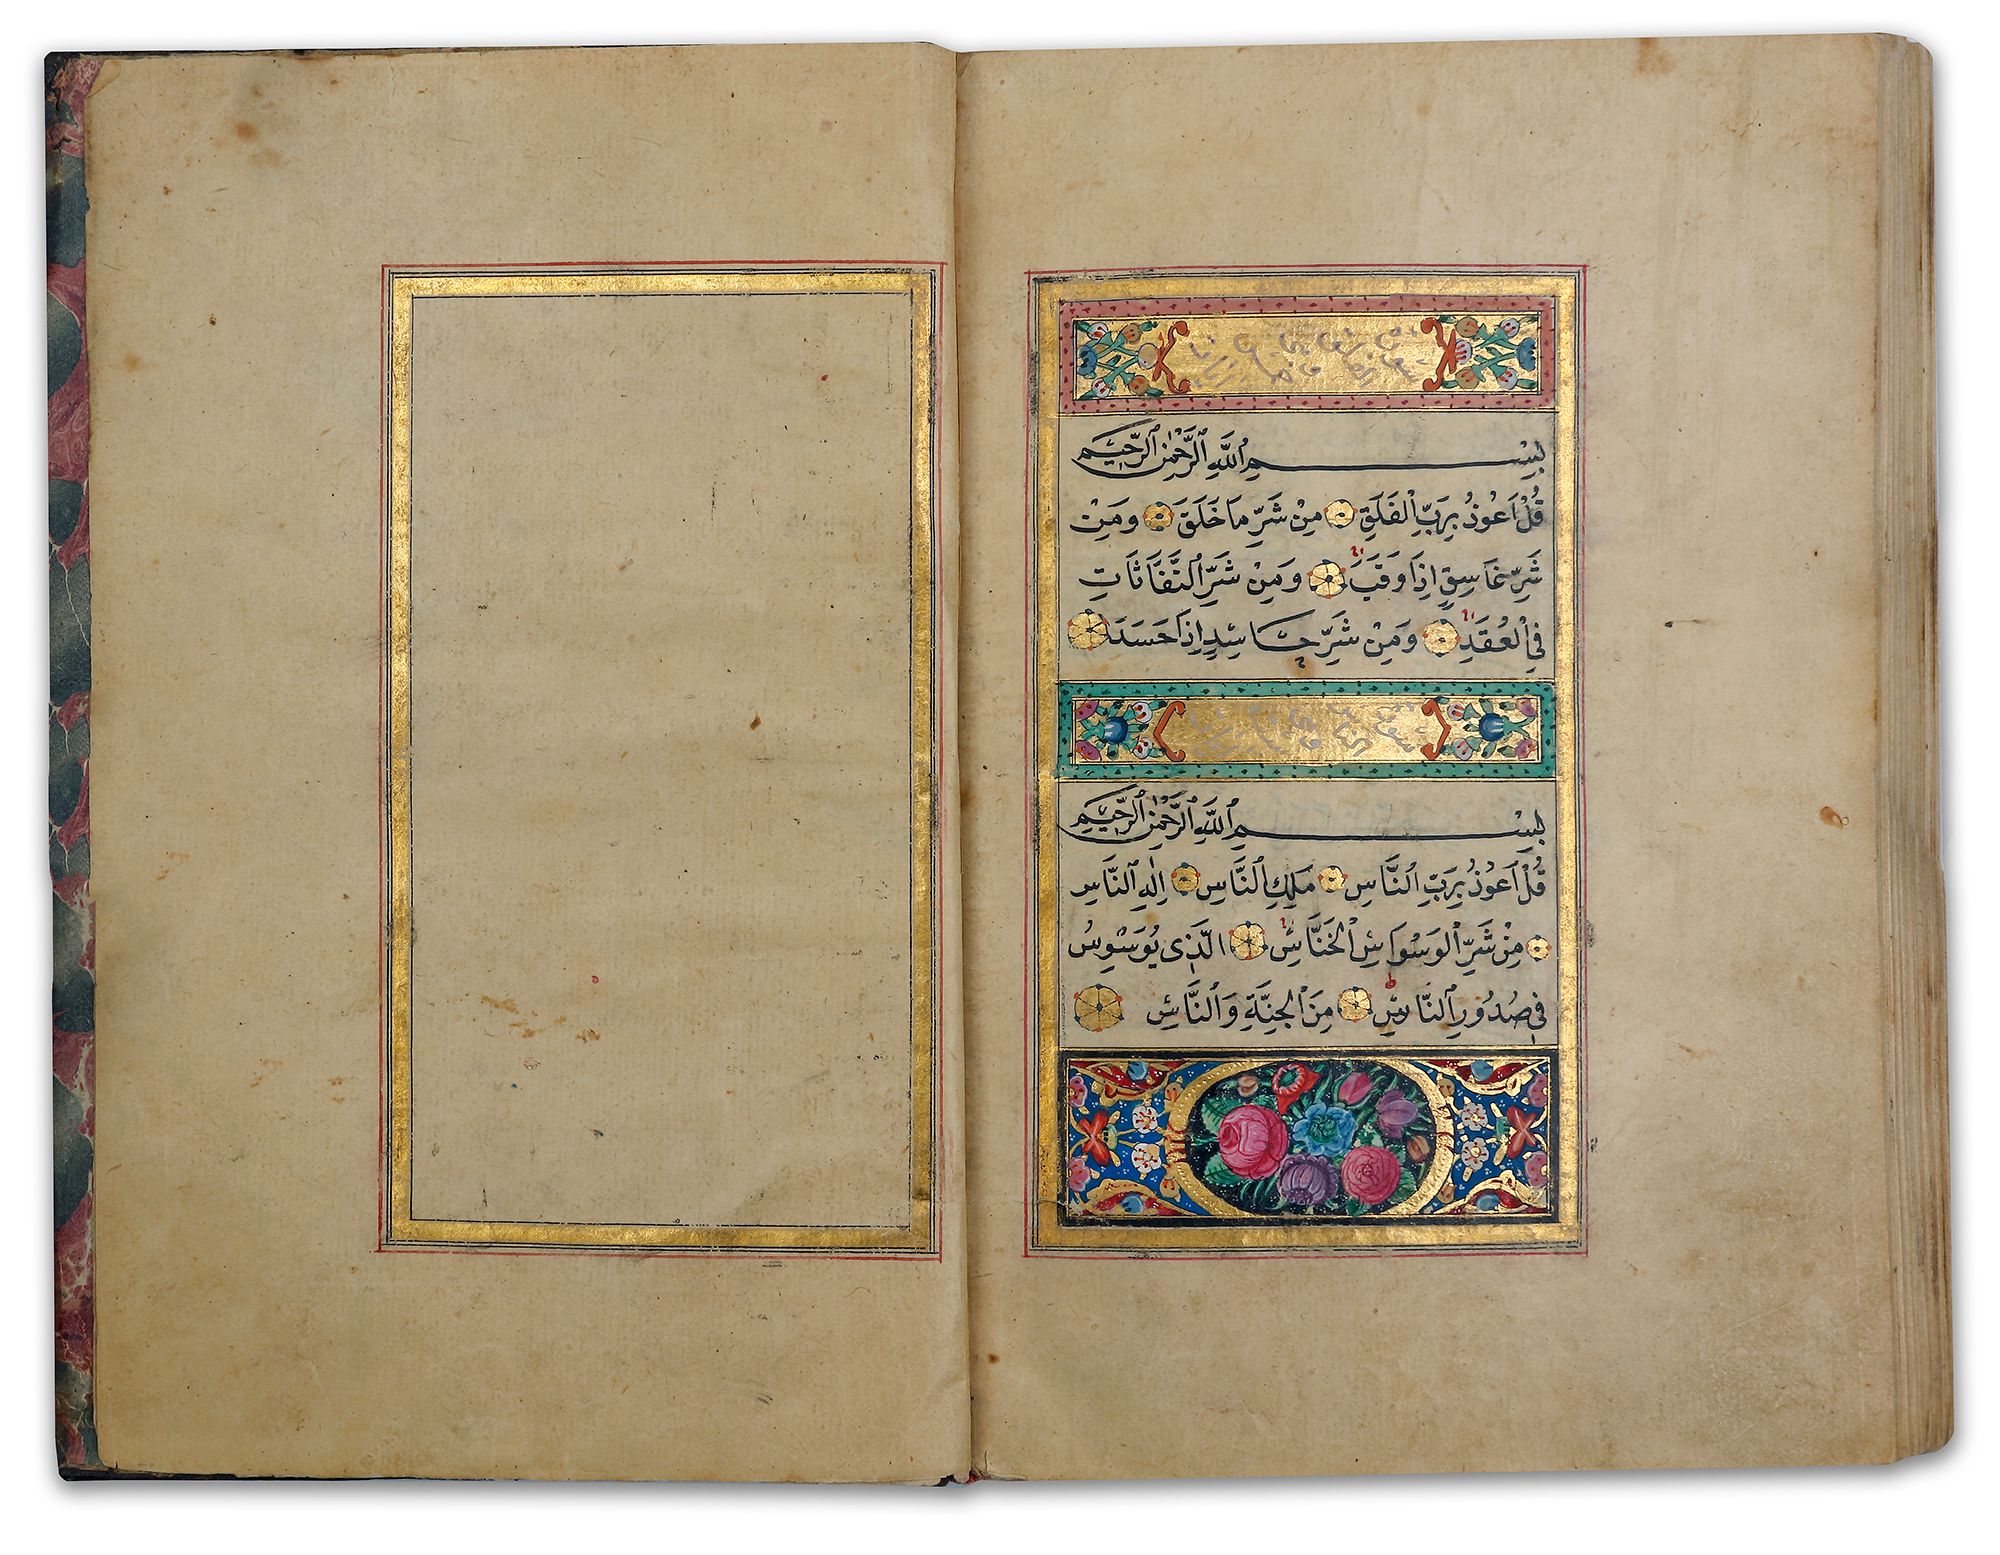 سورة الفلق وهى خمس ايات
بِسْمِ اللّٰهِ الرَّحْمٰنِ الرَّحِيمِ
قُلْ اَعُوْذُ بِرَبِّ الْفَلَقِ مِنْ شَرِّ مَا خَلَقَ وَمِنْ
شَرِّ غَاسِقٍ اِذَا وَقَبَ وَمِنْ شَرِّ النَّفَّاثَاتِ
فِي الْعُقَدِ وَمِنْ شَرِّ حَاسِدٍ اِذَا حَسَدَ
سورة الناس وهى
بِسْمِ اللّٰهِ الرَّحْمٰنِ الرَّحِيمِ
قُلْ اَعُوْذُ بِرَبِّ النَّاسِ مَلِكِ النَّاسِ اِلٰهِ النَّاسِ
مِنْ شَرِّ الْوَسْوَاسِ الْخَنَّاسِ الَّذِى يُوَسْوِسُ
فِى صُدُورِ النَّاسِ مِنَ الْجِنَّةِ وَالنَّاسِ